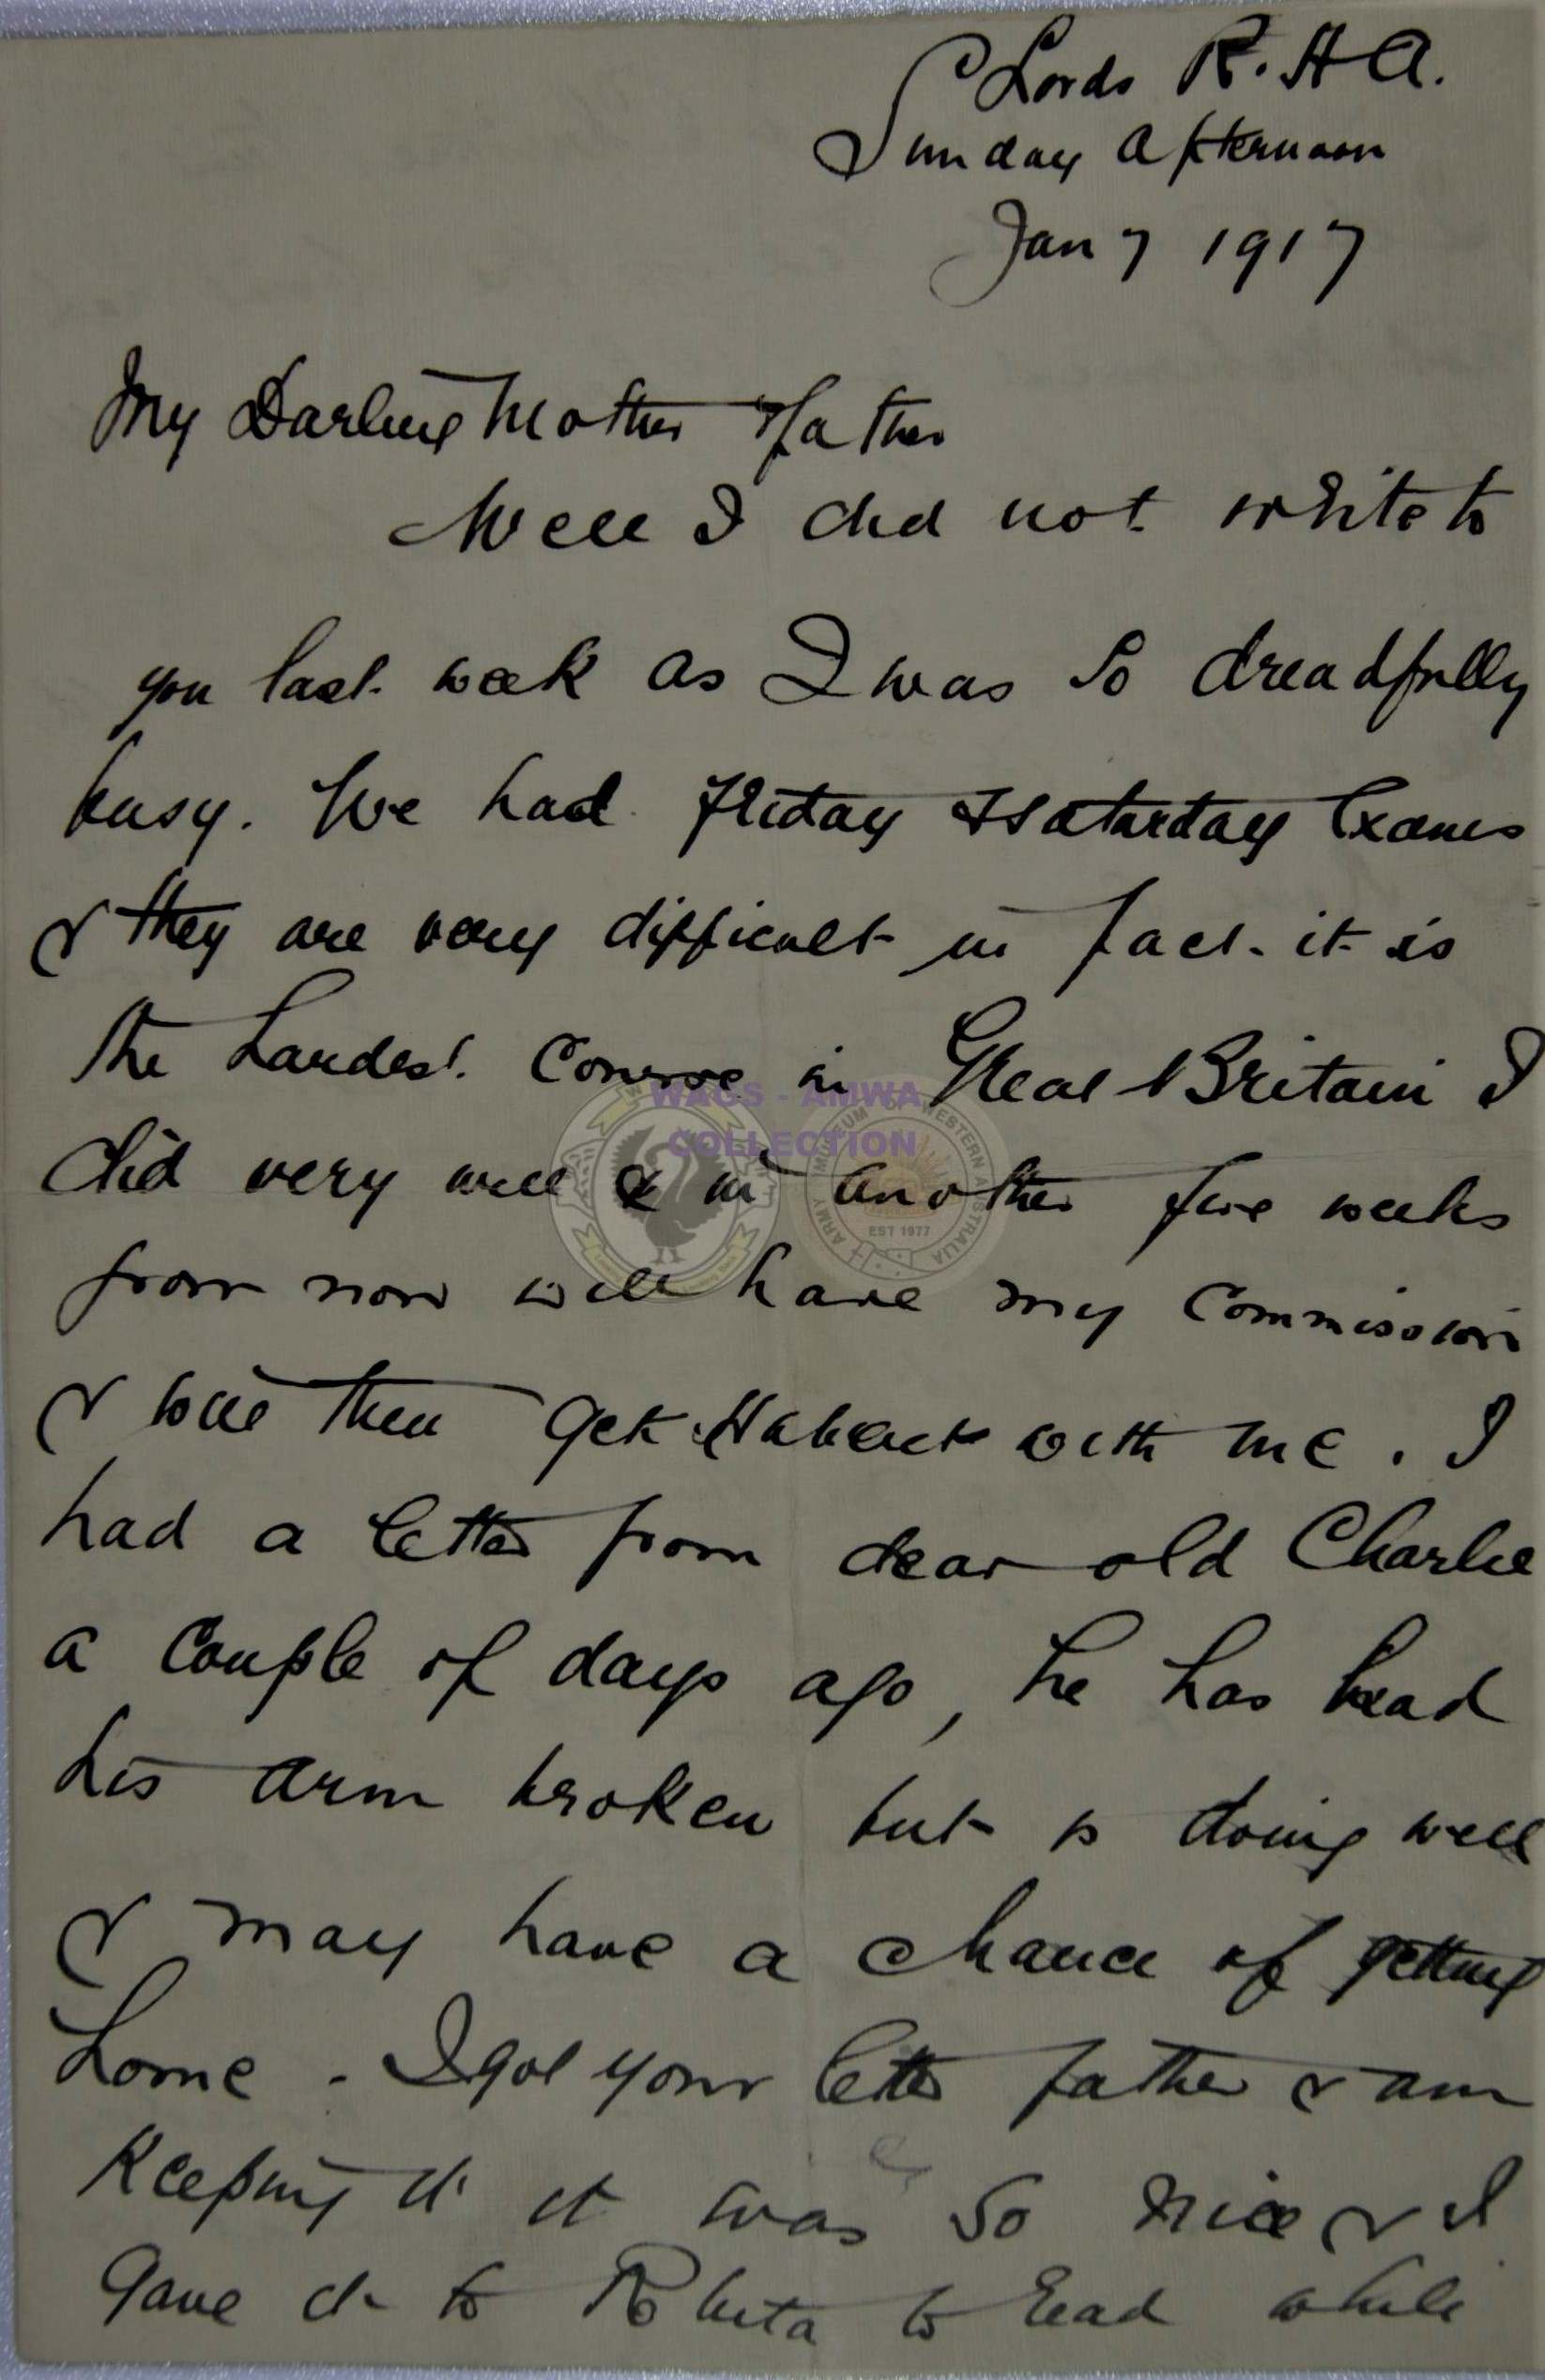 Lords R.H A.
Sunday Afternoon
Jan 7 1917
My Darling Mother & father
Well I did not write to
you last week as I was so dreadfully
busy. We had Friday & Saturday Exams
& they are very difficult in fact it is
the hardest Course in Great Britain I
did very well & in another five weeks
from now will have my Commission
& will then get with me. I
had a letter from dear old Charlie
a couple of days ago, he has had
his arm broken but is doing well
& may have a chance of getting
home. I got your letter father & am
keeping it it was so nice & I
gave it to to read while
WAGS - AMWA
COLLECTION
ARMY MUSEUM OF WESTERN AUSTRALIA
EST 1977